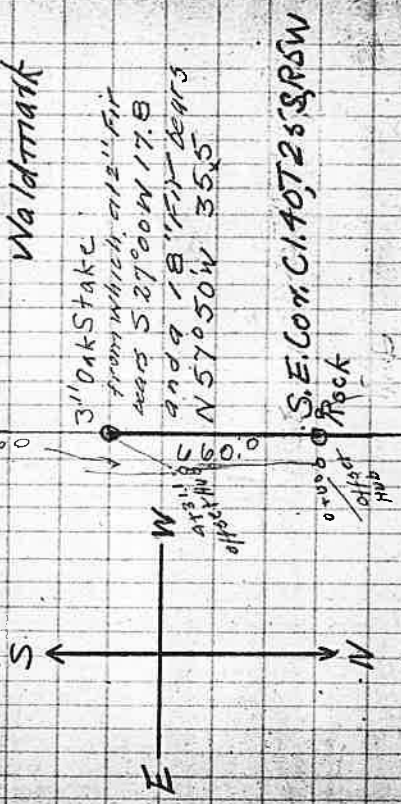 Waldmark
3" Oak Stake
from which a 12" Fir
bears S 27°00'W 17.8
and a 18" Fir bears
N 57°50'W 35.5
S.E. Cor. Cl. 40, T2S, R5W
Rock
offset Hub
0+00
offset
Hub
S
E
W
N